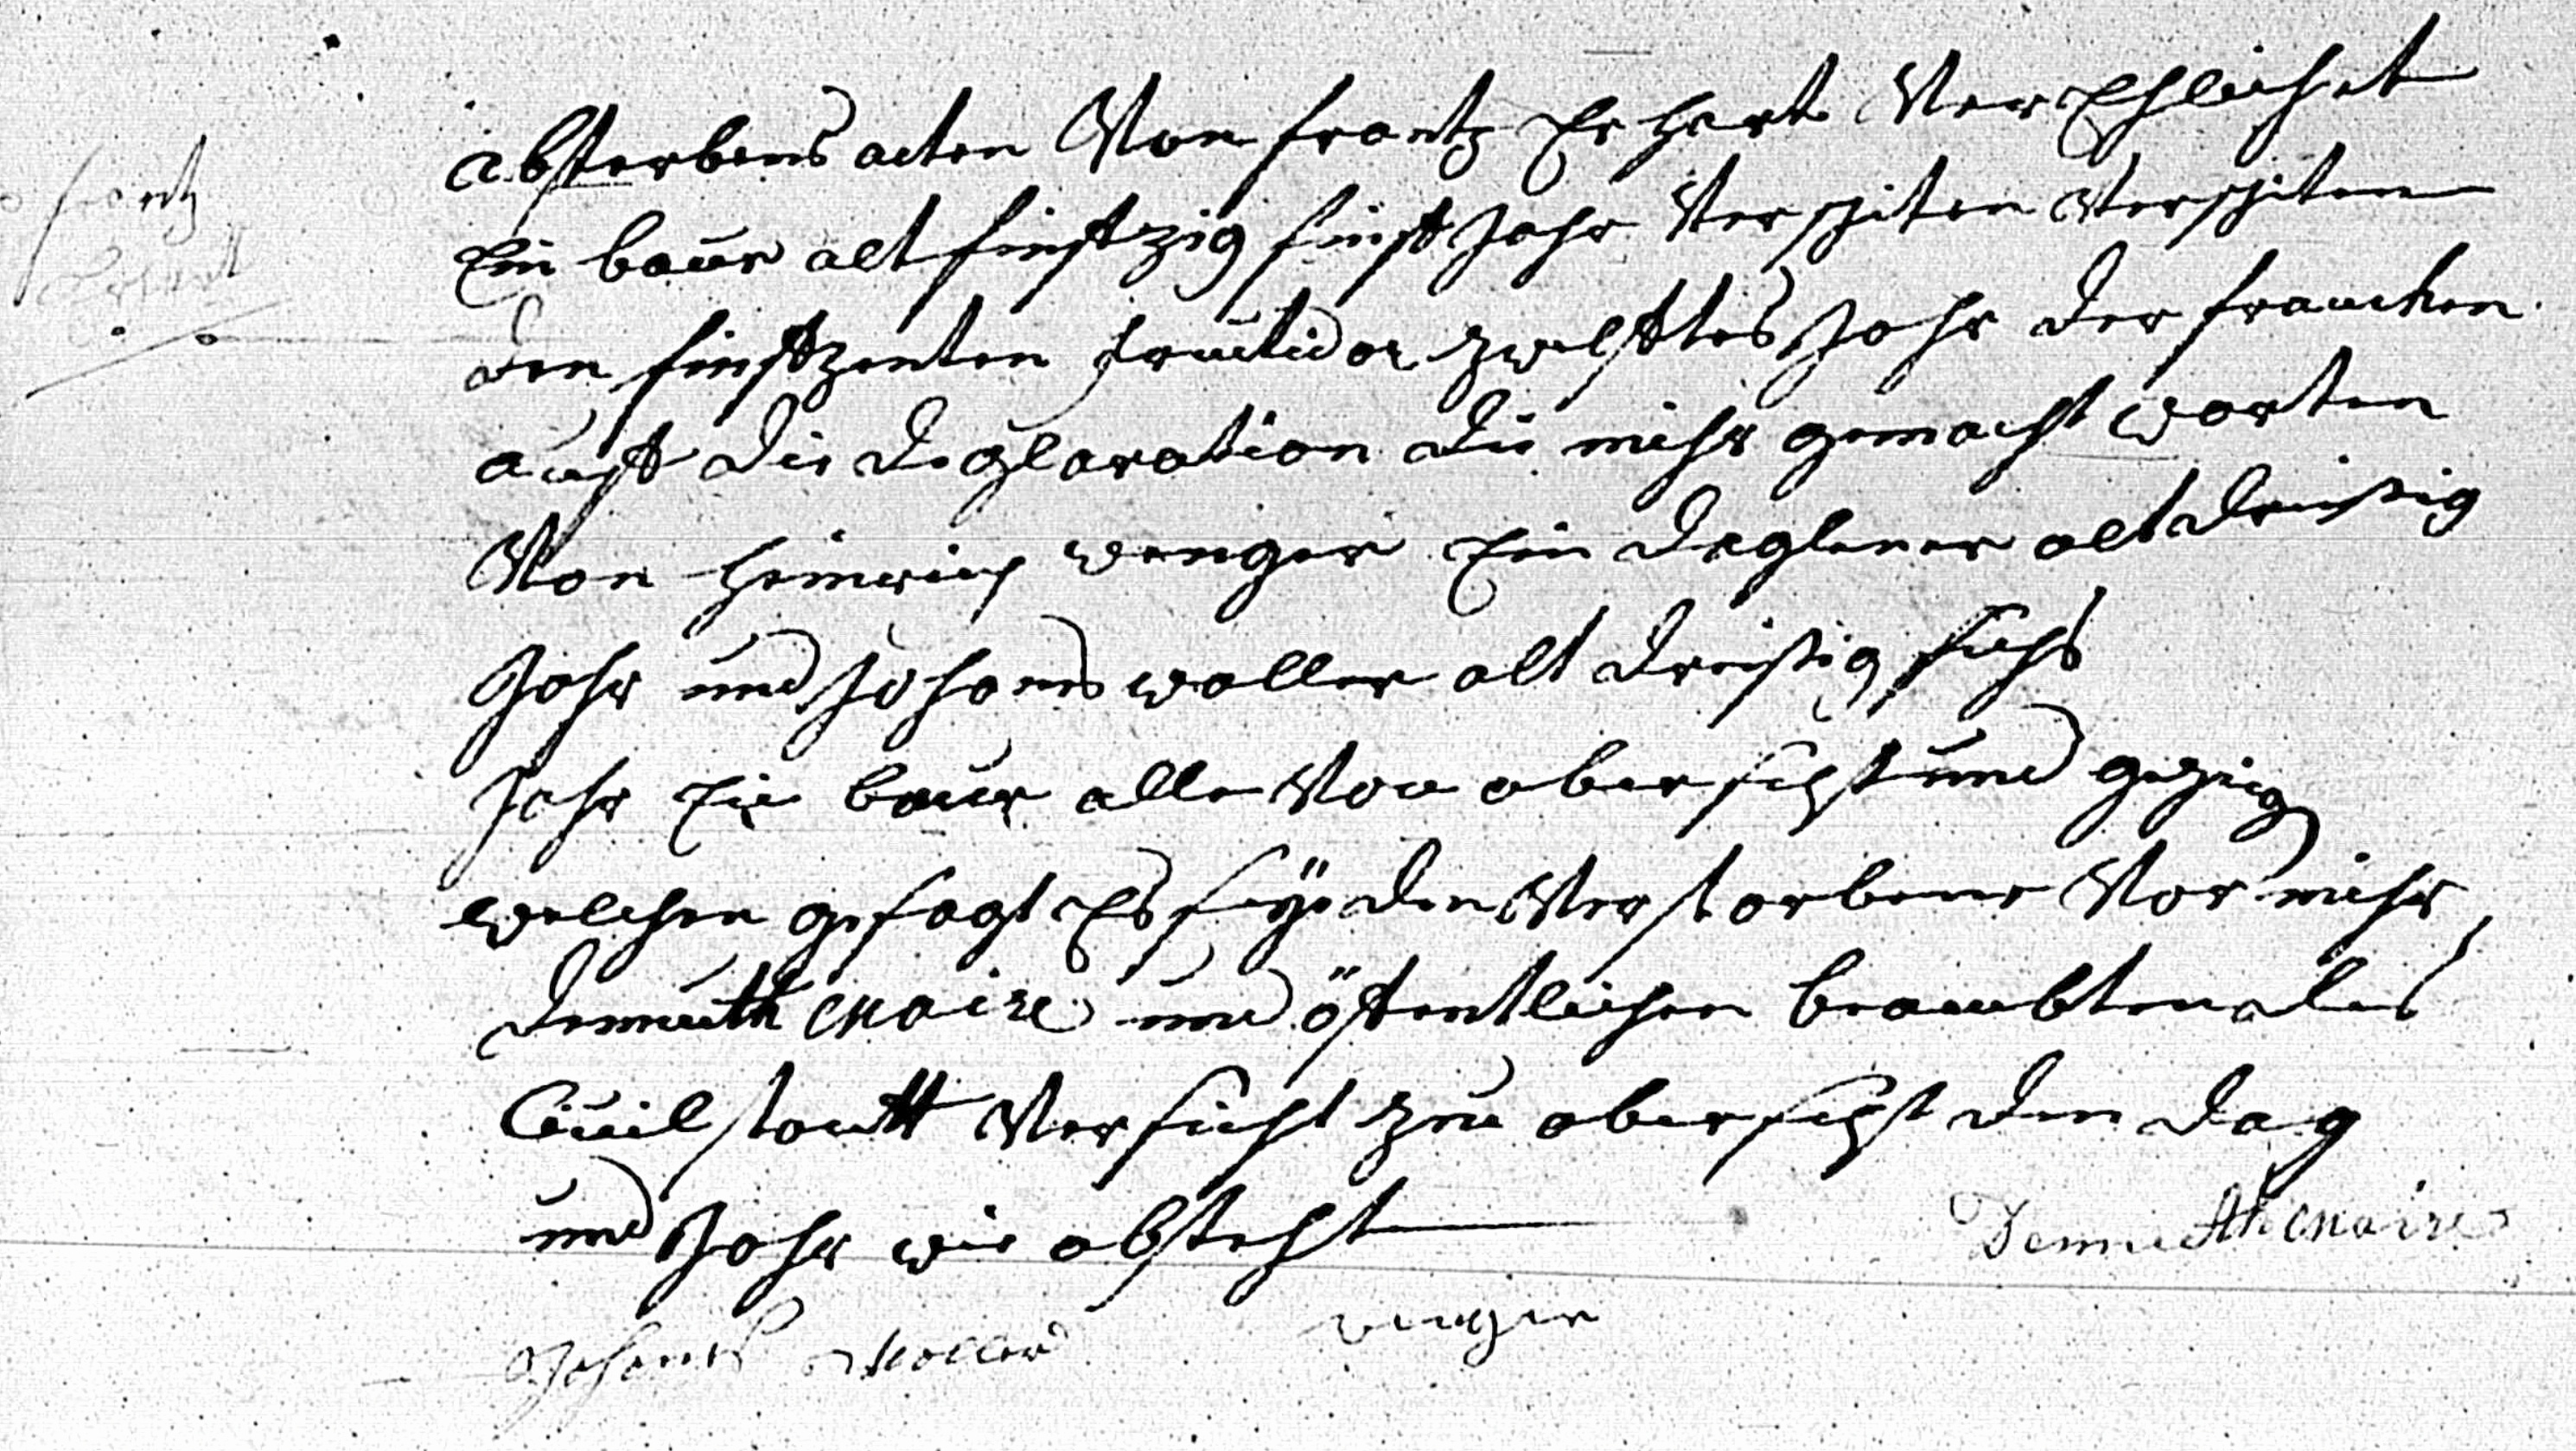 frantz
Erhart
absterbens acten Von frantz Erhart Verehlichet
Ein baur alt finftzig finft Jahr Verschiten Verschiten
den finftzenten fructidor zwelftes Jahr der francken
auft die deglaration die mihr gemacht worten
Von Heinrich wenger Ein daglener alt dreisig
Jahr und Johanes waller alt dreisig sechs
Jahr Ein baur alle Von obersechst und gezieg
welchen gesagt Es seÿe den Verstorbene Vor mihr
Demuth Maire und öffentlichen beambten des
Civil stantt Versicht zu obersechst den dag
und Jahr wie obsteht
Demuth Maire
Johanes Waller wenger